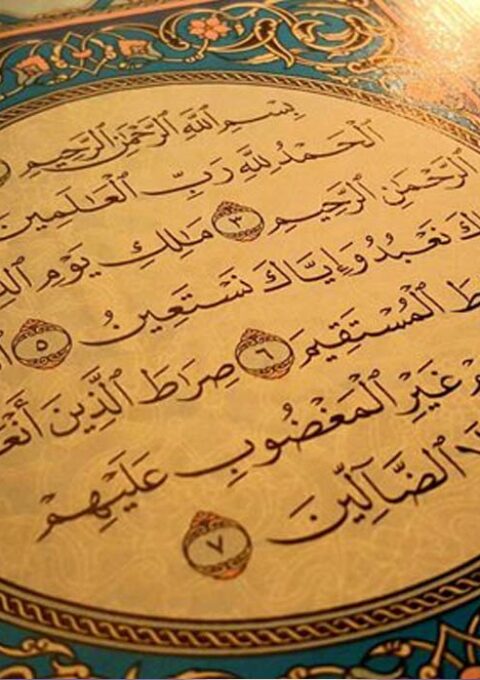 بِسْمِ ٱللَّهِ ٱلرَّحْمَٰنِ ٱلرَّحِيمِ
ٱلْحَمْدُ لِلَّهِ رَبِّ ٱلْعَٰلَمِينَ
ٱلرَّحْمَٰنِ ٱلرَّحِيمِ ٣ مَٰلِكِ يَوْمِ
نَعْبُدُ وَإِيَّاكَ نَسْتَعِينُ ٥
ٱلْمُسْتَقِيمَ ٦ صِرَٰطَ ٱلَّذِينَ
غَيْرِ ٱلْمَغْضُوبِ عَلَيْهِمْ
ٱلضَّآلِّينَ ٧